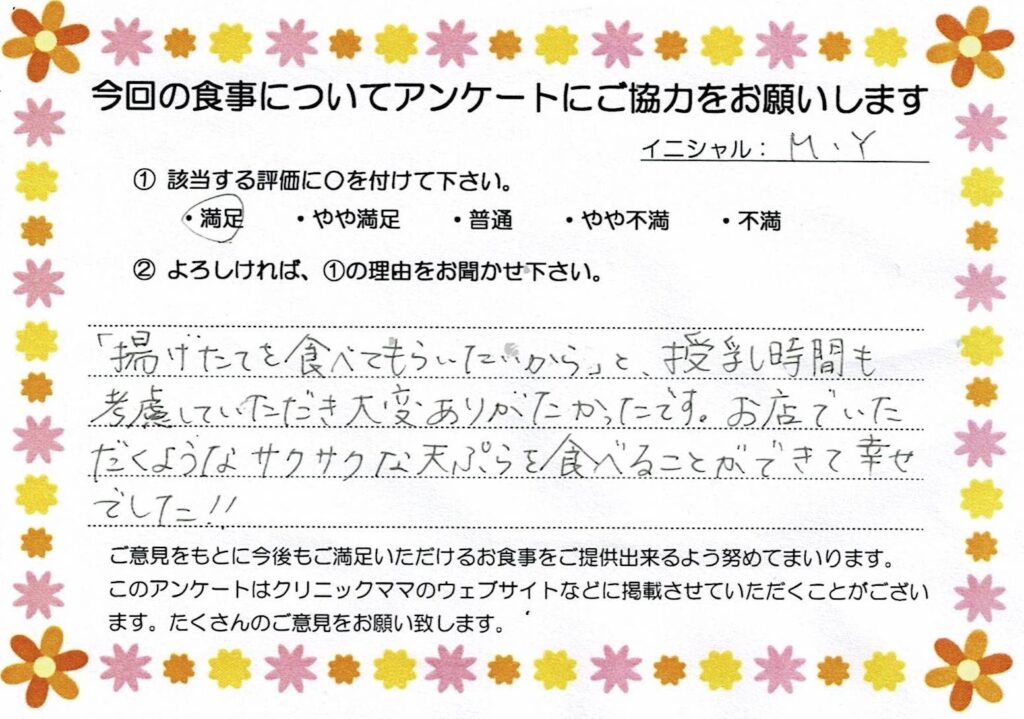 今回の食事についてアンケートにご協力をお願いします
イニシャル： M.Y
① 該当する評価に〇を付けて下さい。
・満足 ・やや満足 ・普通 ・やや不満 ・不満
② よろしければ、①の理由をお聞かせ下さい。
「揚げたてを食べてもらいたいから」と、授乳時間も
考慮していただき大変ありがたかったです。お店でいた
だくようなサクサクな天ぷらを食べることができて幸せ
でした!!
ご意見をもとに今後もご満足いただけるお食事をご提供出来るよう努めてまいります。
このアンケートはクリニックママのウェブサイトなどに掲載させていただくことがござい
ます。たくさんのご意見をお願い致します。